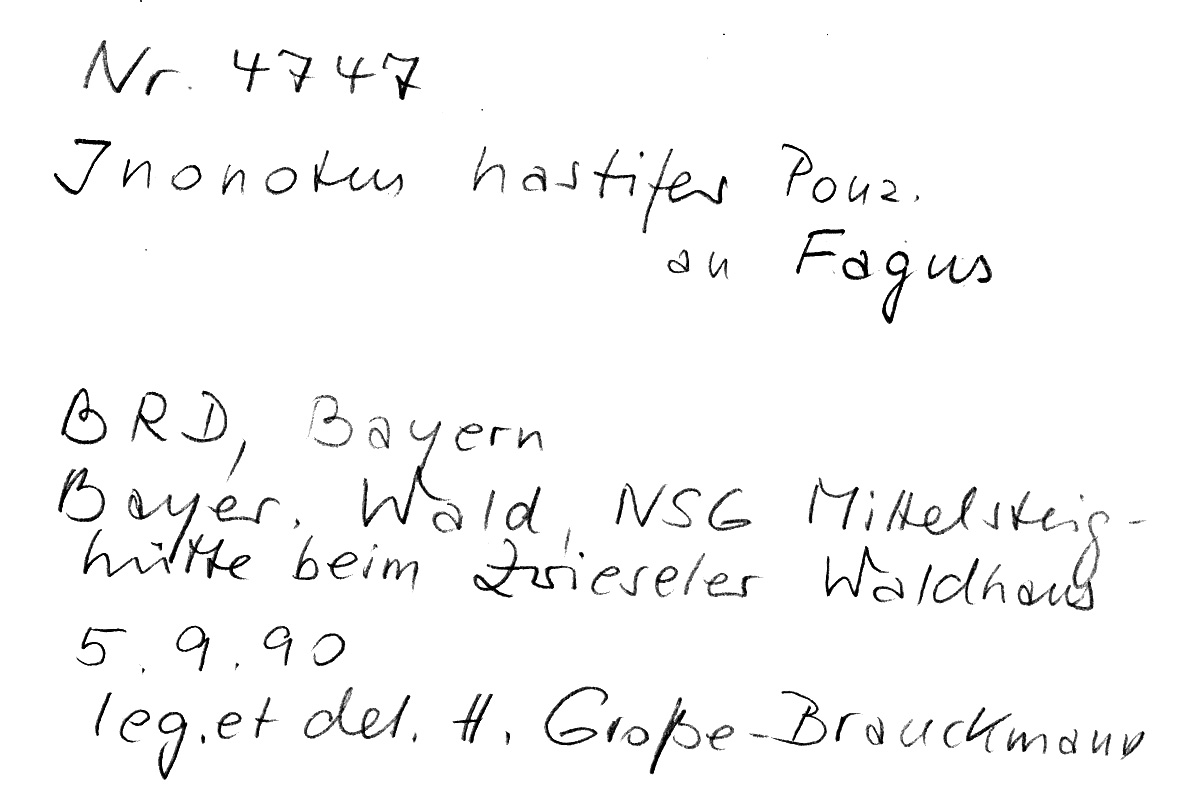 Nr. 4747
Inonotus hastifer Pouz.
an Fagus
BRD, Bayern
Bayer. Wald, NSG Mittelsteig-
hütte beim Zwieseler Waldhaus
5.9.90
leg. et det. H. Große-Brauckmann